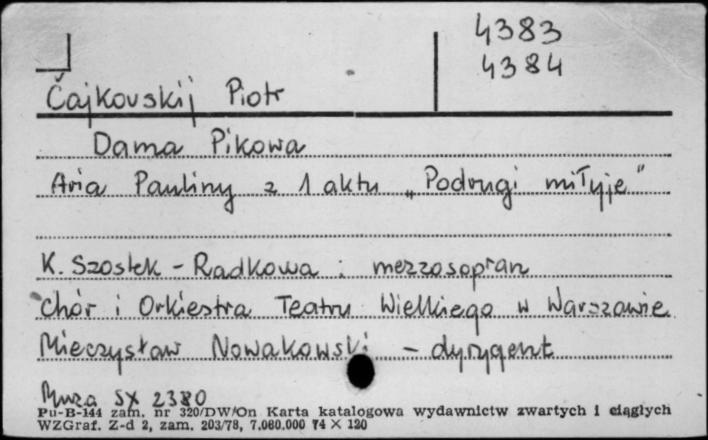 4383
4384
Čajkovskij Piotr
Dama Pikowa
Aria Pauliny z 1 aktu „Podrugi miłyje"
K. Szostek-Radkowa : mezzosopran
Chór i Orkiestra Teatru Wielkiego w Warszawie
Mieczysław Nowakowski - dyrygent
Muza SX 2380
Pu-B-144 zam. nr 320/DW/On Karta katalogowa wydawnictw zwartych i ciągłych
WZGraf. Z-d 2, zam. 203/78, 7.060.000 74 × 120